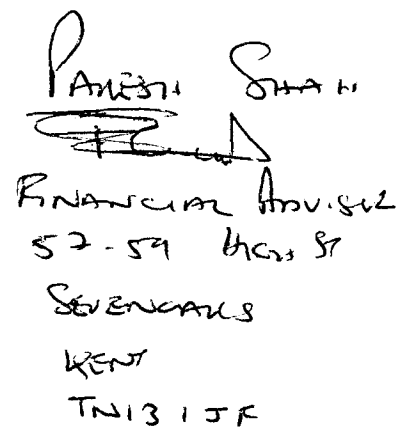 PARESH SHAH
FINANCIAL ADVISER
57-59 HIGH ST
SEVENOAKS
KENT
TN13 1JF